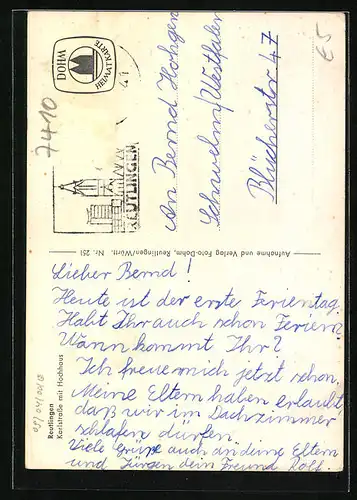 DOHM
HEIMATKARTE
7410
REUTLINGEN
An Bernd Hohgen
Schwelm/Westfalen
Blücherstr 47
€5
Aufnahme und Verlag Foto-Dohm, Reutlingen/Württ. Nr. 251
Lieber Bernd!
Heute ist der erste Ferientag.
Habt Ihr auch schon Ferien?
Wann kommt Ihr?
Ich freue mich jetzt schon.
Meine Eltern haben erlaubt,
daß wir im Dachzimmer
schlafen dürfen.
Viele Grüße auch an deine Eltern
und Jürgen dein Freund Rolf
Reutlingen
Karlstraße mit Hochhaus